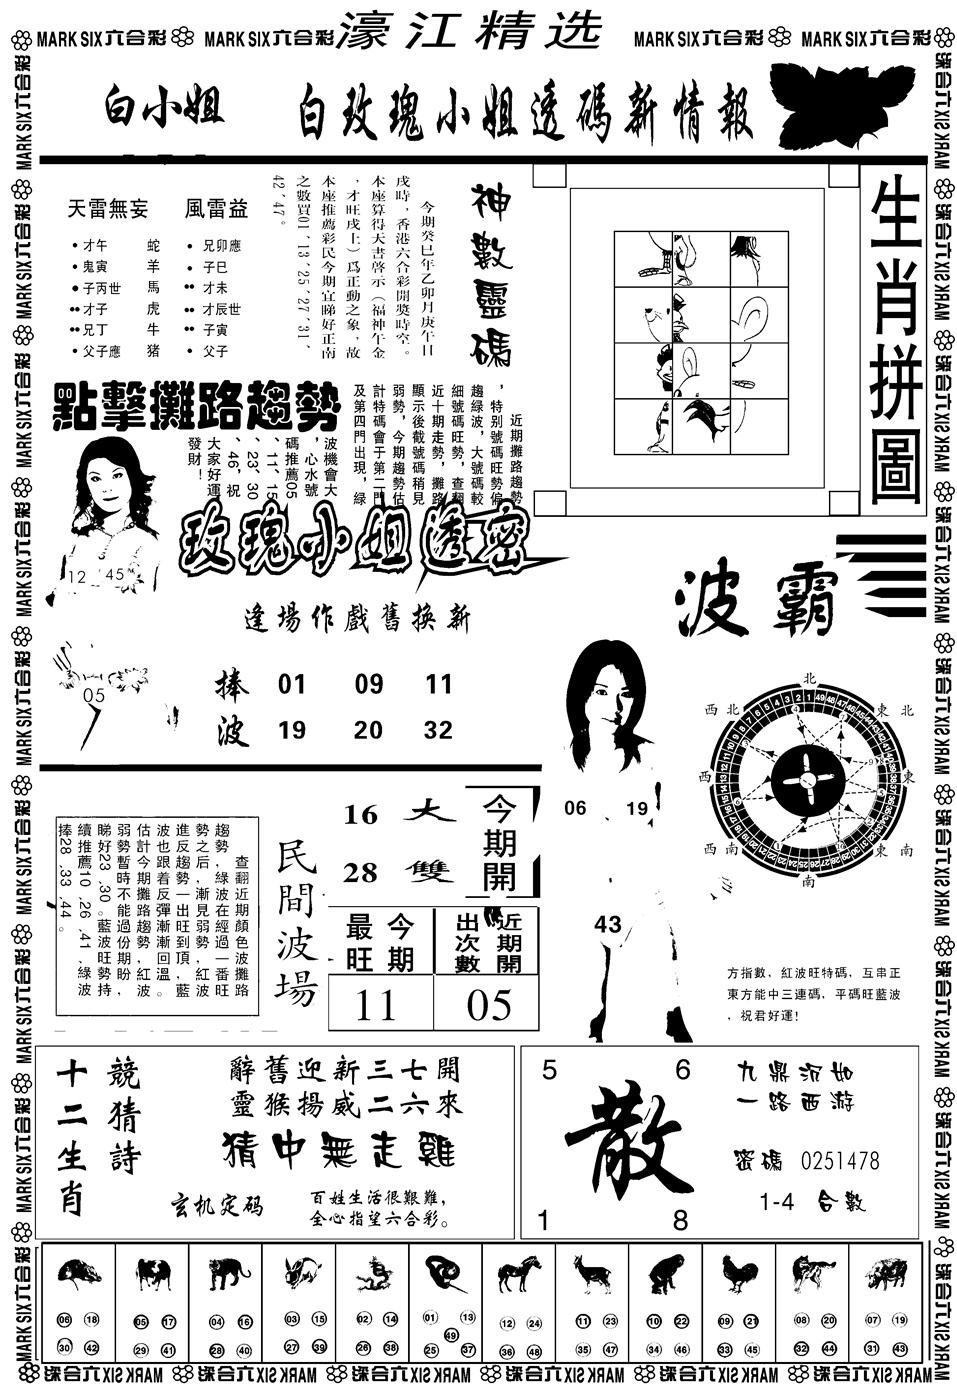 MARK SIX六合彩 MARK SIX六合彩 濠江精选 MARK SIX六合彩 MARK SIX六合彩
白小姐 白玫瑰小姐透碼新情報
天雷無妄 風雷益
•才午 蛇 • 兄卯應
•鬼寅 羊 • 子巳
•子丙世 馬 •• 才未
••才子 虎 •• 才辰世
••兄丁 牛 •• 子寅
•父子應 猪 • 父子
神數靈碼
今期癸巳年乙卯月庚午日
戌時，香港六合彩開獎時空。
本座算得天書啓示（福神午金
，才旺戌土）爲正動之象，故
本座推薦彩民今期宜睇好正南
之數買01、13、25、27、31、
42、47。
生肖拼圖
點擊攤路趨勢
近期攤路趨勢
，特別號碼旺勢偏
趨綠波，大號碼較
細號碼旺勢，查翻
近十期走勢，攤路
顯示後截號碼稍見
弱勢，今期趨勢估
計特碼會于第二門
及第四門出現，綠
波機會大
，心水號
碼推薦05
、11、15
、23、30
、46，祝
大家好運
發財！
12 45
05
玫瑰小姐透密
逢場作戲舊換新
捧 01 09 11
波 19 20 32
波霸
06 19
43
北
西北 東北
西 東
西南 東南
南
方指數，紅波旺特碼，互串正
東方能中三連碼，平碼旺藍波
，祝君好運！
查翻近期顏色波攤路
趨勢，綠波在經過一番旺
勢之后，漸見弱勢，紅波
進反趨勢一出旺到頂，藍
波也跟着反彈漸漸回溫。
估計今期攤路趨勢，紅波
弱勢暫時不能過份期盼，
睇好23、30。藍波旺勢持
續推薦10、26、41，綠波
捧28、33、44。
民間波場
16 大
28 雙
今期開
最旺 今期
出次數 近期開
11 05
十二生肖
競猜詩
辭舊迎新三七開
靈猴揚威二六來
猜中無走雞
玄机定码
百姓生活很艱難，
全心指望六合彩。
5 6
散
1 8
九鼎沉如
一路西游
密碼 0251478
1-4 合數
06 18 05 17 04 16 03 15 02 14 01 13 12 24 11 23 10 22 09 21 08 20 07 19
49
30 42 29 41 28 40 27 39 26 38 25 37 36 48 35 47 34 46 33 45 32 44 31 43
MARK SIX六合彩 MARK SIX六合彩 MARK SIX六合彩 MARK SIX六合彩 MARK SIX六合彩